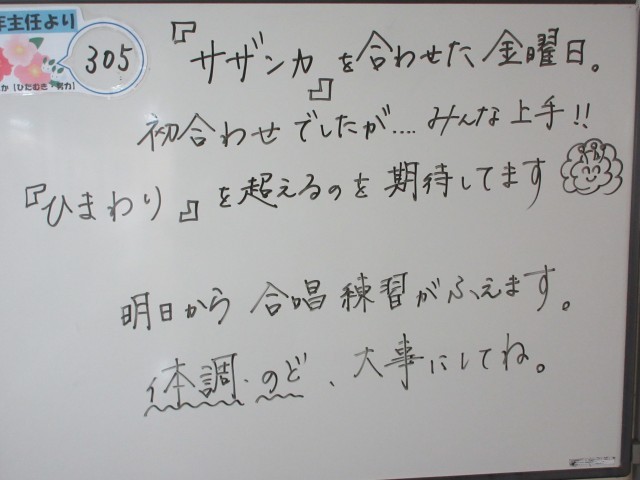 年主任より
305
か【ひたむき 努力】
『サザンカ』を合わせた金曜日。
初合わせでしたが....みんな上手!!
『ひまわり』を超えるのを期待してます
明日から合唱練習がふえます。
体調・のど、大事にしてね。